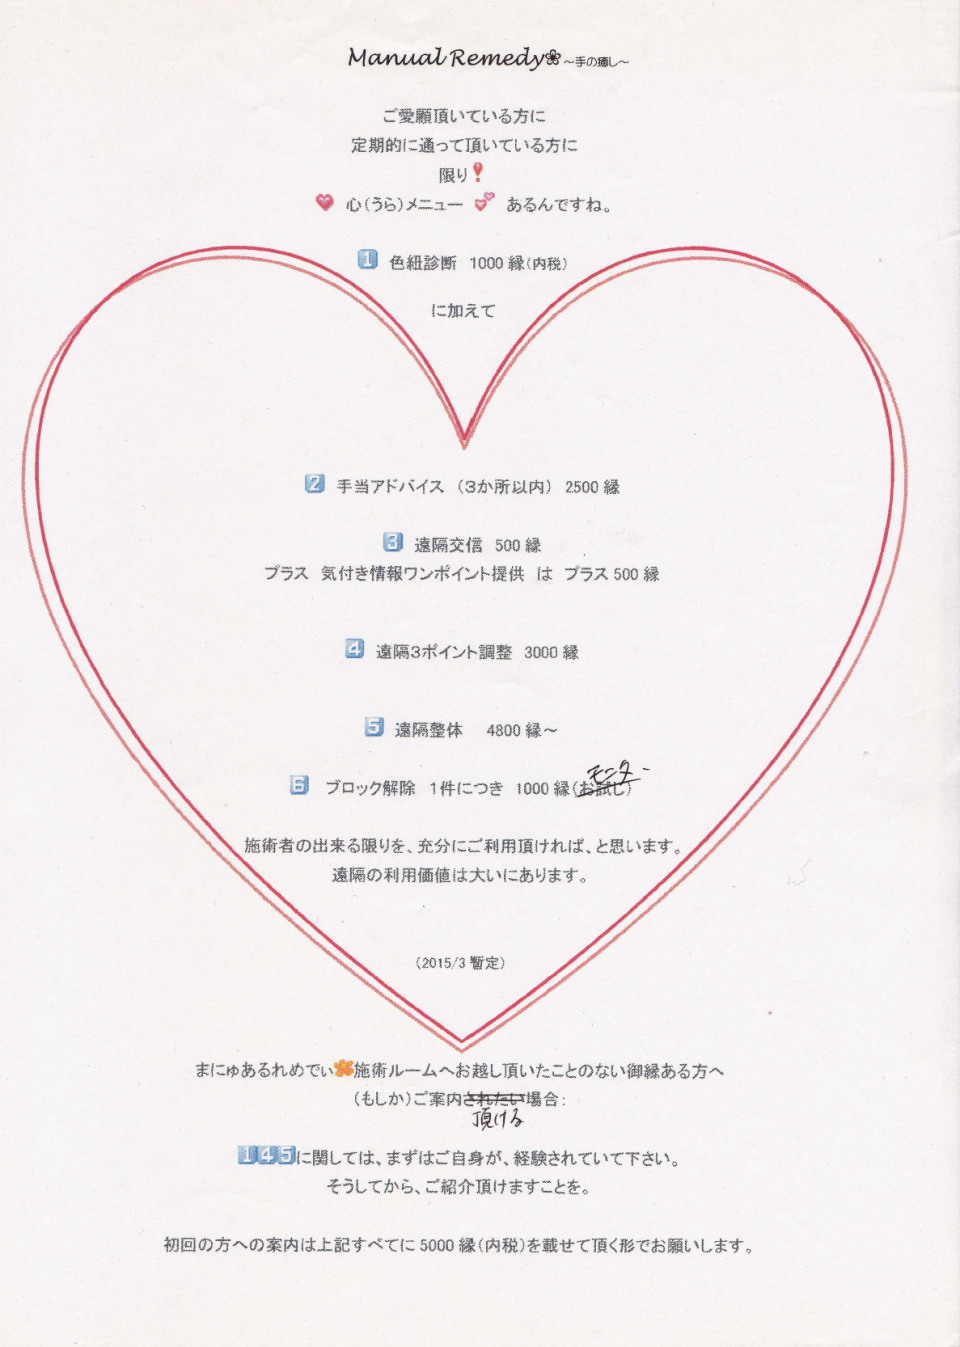 Manual Remedy ～手の癒し～
ご愛願頂いている方に
定期的に通って頂いている方に
限り❗
心(うら)メニュー 💕 あるんですね。
1 色紐診断 1000 縁(内税)
に加えて
2 手当アドバイス (3か所以内) 2500 縁
3 遠隔交信 500 縁
プラス 気付き情報ワンポイント提供 は プラス 500 縁
4 遠隔3ポイント調整 3000 縁
5 遠隔整体 4800 縁～
モニター
6 ブロック解除 1件につき 1000 縁(お試し)
施術者の出来る限りを、充分にご利用頂ければ、と思います。
遠隔の利用価値は大いにあります。
(2015/3 暫定)
まにゅあるれめでぃ施術ルームへお越し頂いたことのない御縁ある方へ
(もしか)ご案内されたい場合:
頂ける
145に関しては、まずはご自身が、経験されていて下さい。
そうしてから、ご紹介頂けますことを。
初回の方への案内は上記すべてに 5000 縁(内税)を載せて頂く形でお願いします。